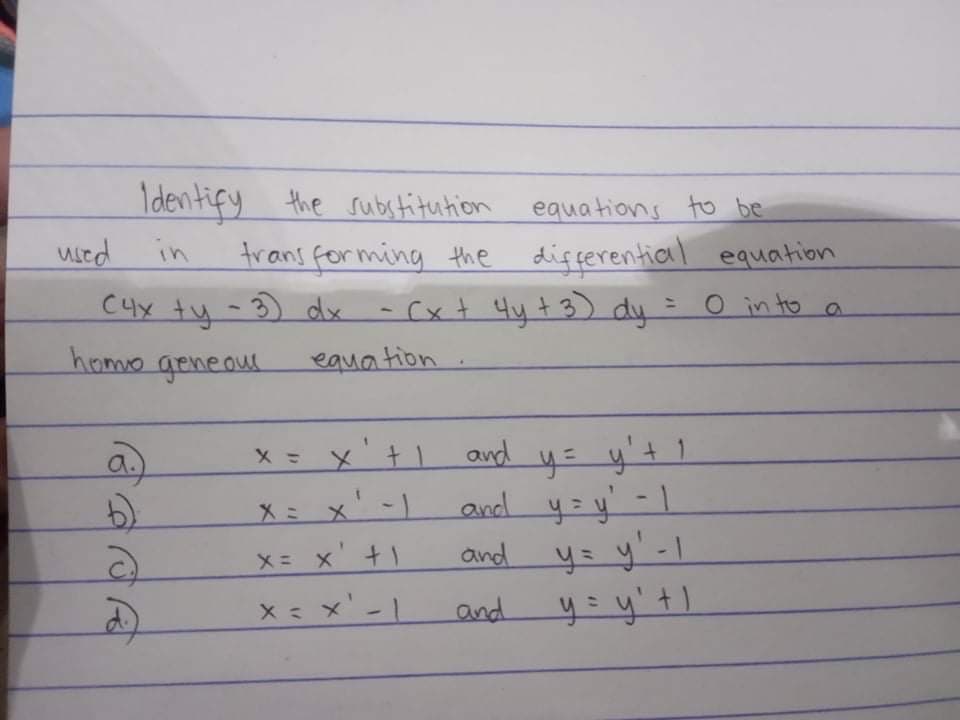 Identify the substitution equations to be
used in transforming the differential equation
(4x + y - 3) dx - (x + 4y + 3) dy = 0 into a
homogeneous equation.
a.) x = x' + 1 and y = y' + 1
b.) x = x' - 1 and y = y' - 1
c.) x = x' + 1 and y = y' - 1
d.) x = x' - 1 and y = y' + 1